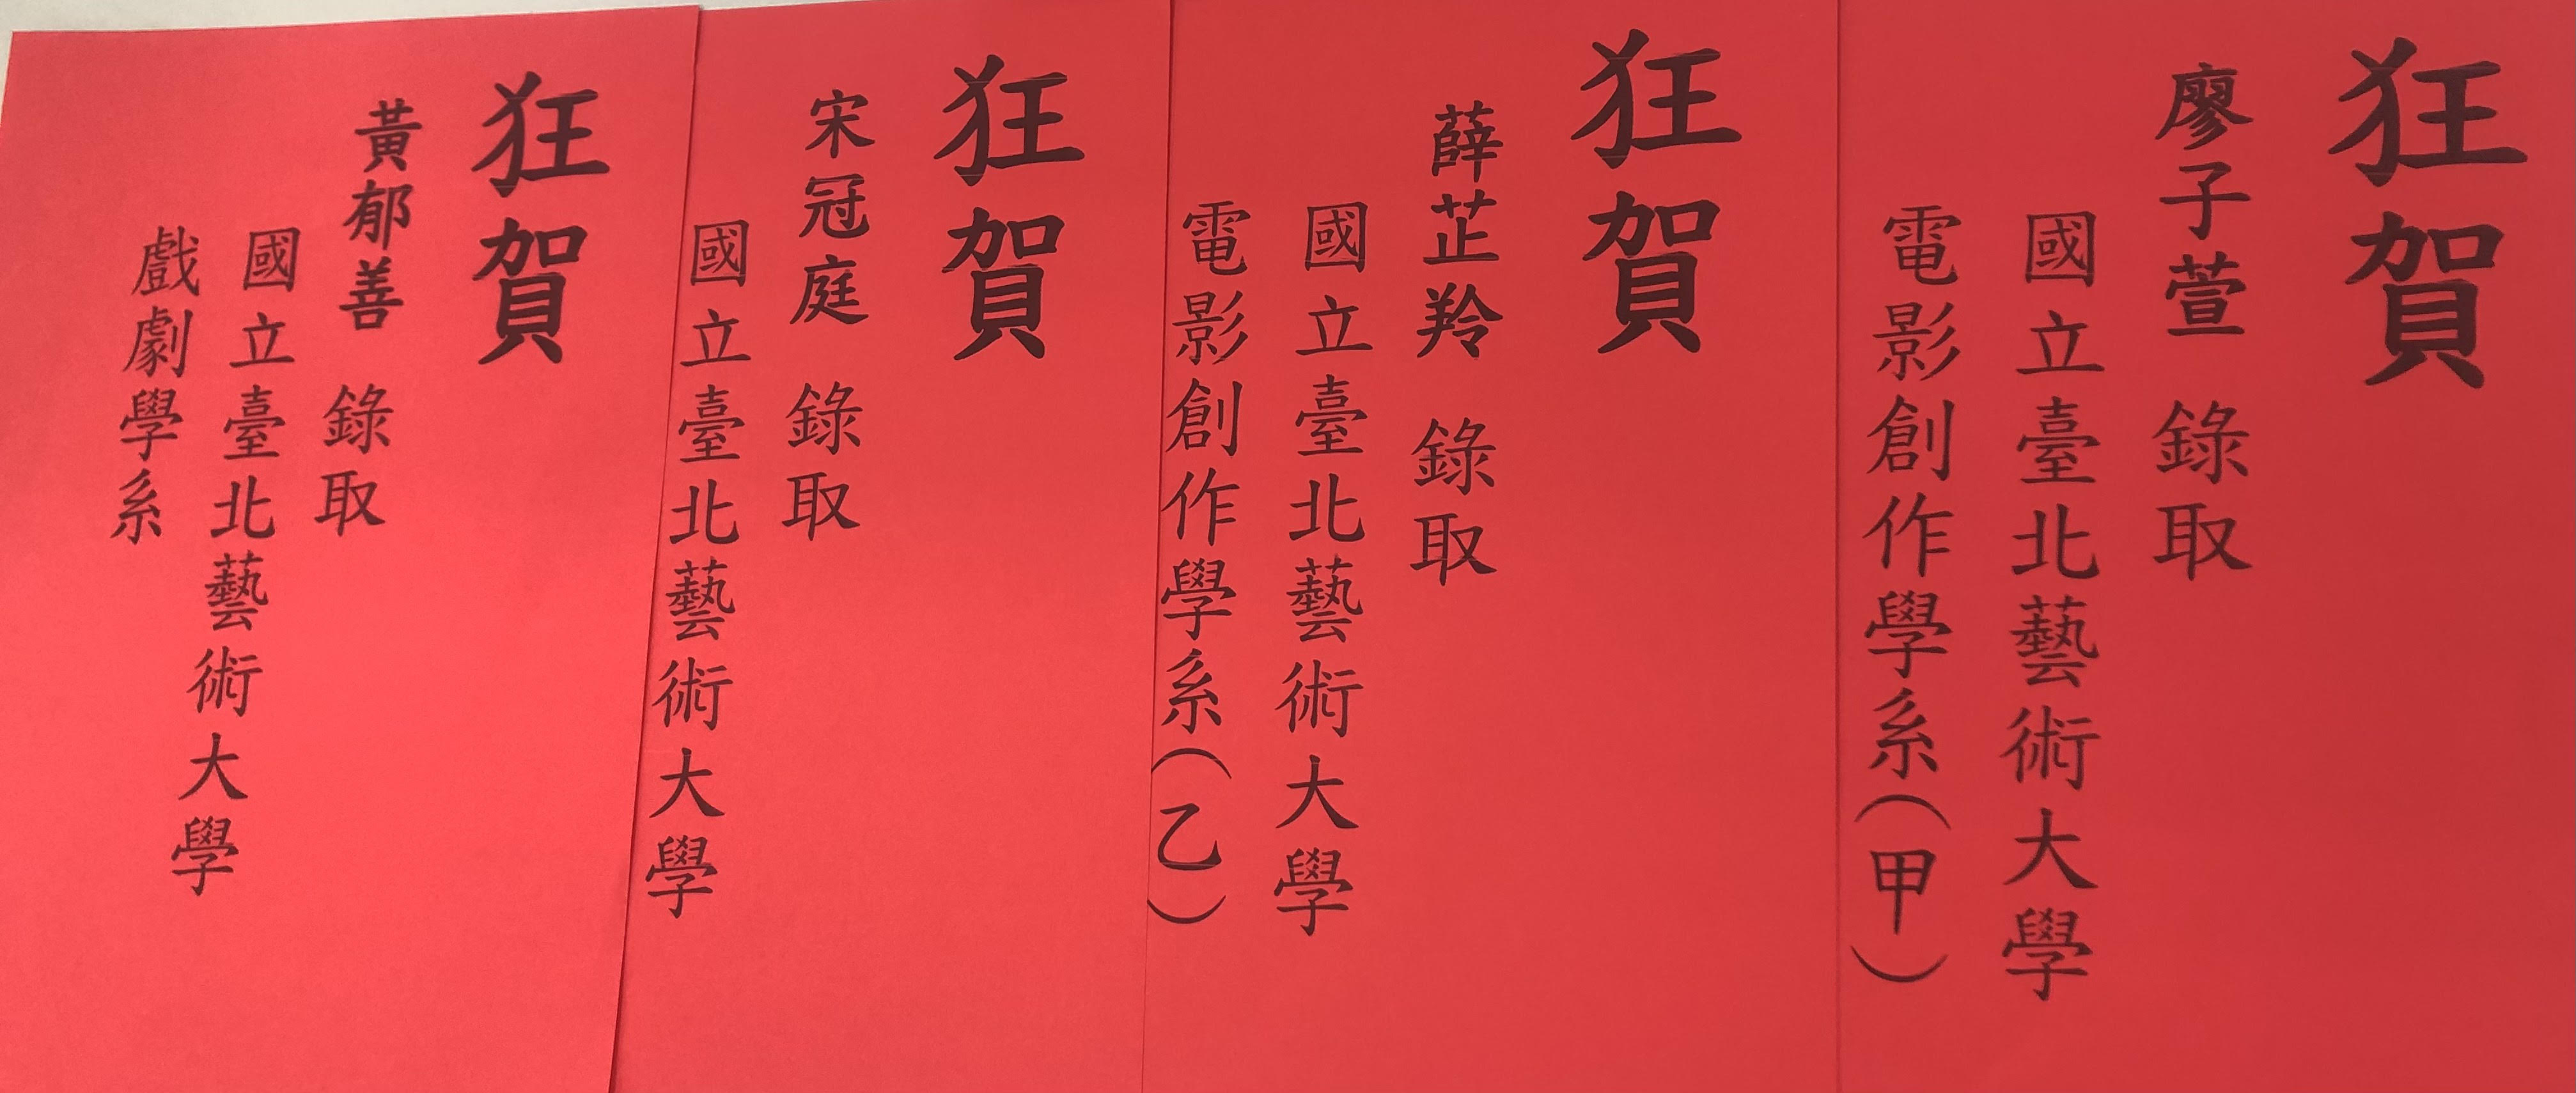 狂賀
廖子萱 錄取
國立臺北藝術大學
電影創作學系(甲)
狂賀
薛芷羚 錄取
國立臺北藝術大學
電影創作學系(乙)
狂賀
宋冠庭 錄取
國立臺北藝術大學
狂賀
黃郁善 錄取
國立臺北藝術大學
戲劇學系